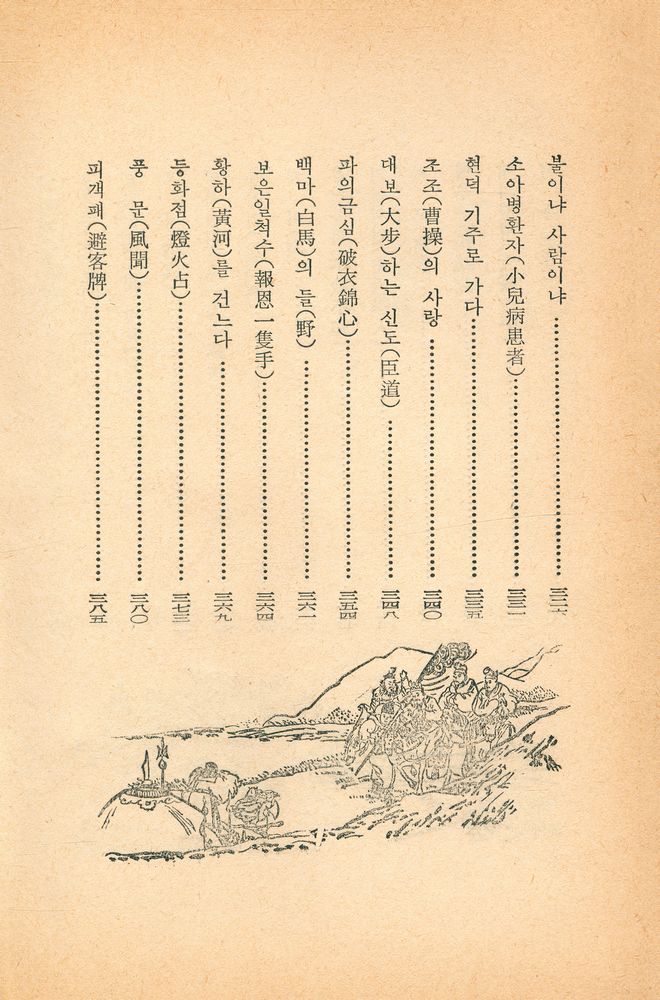 불이냐 사람이냐 …… 三二六
소아병환자(小兒病患者) …… 三三一
현덕 기주로 가다 …… 三三五
조조(曹操)의 사랑 …… 三四〇
대보(大步)하는 신도(臣道) …… 三四八
파의금심(破衣錦心) …… 三五四
백마(白馬)의 들(野) …… 三六一
보은일척수(報恩一隻手) …… 三六四
황하(黃河)를 건느다 …… 三六九
등화점(燈火占) …… 三七三
풍 문(風聞) …… 三八〇
피객패(避客牌) …… 三八五